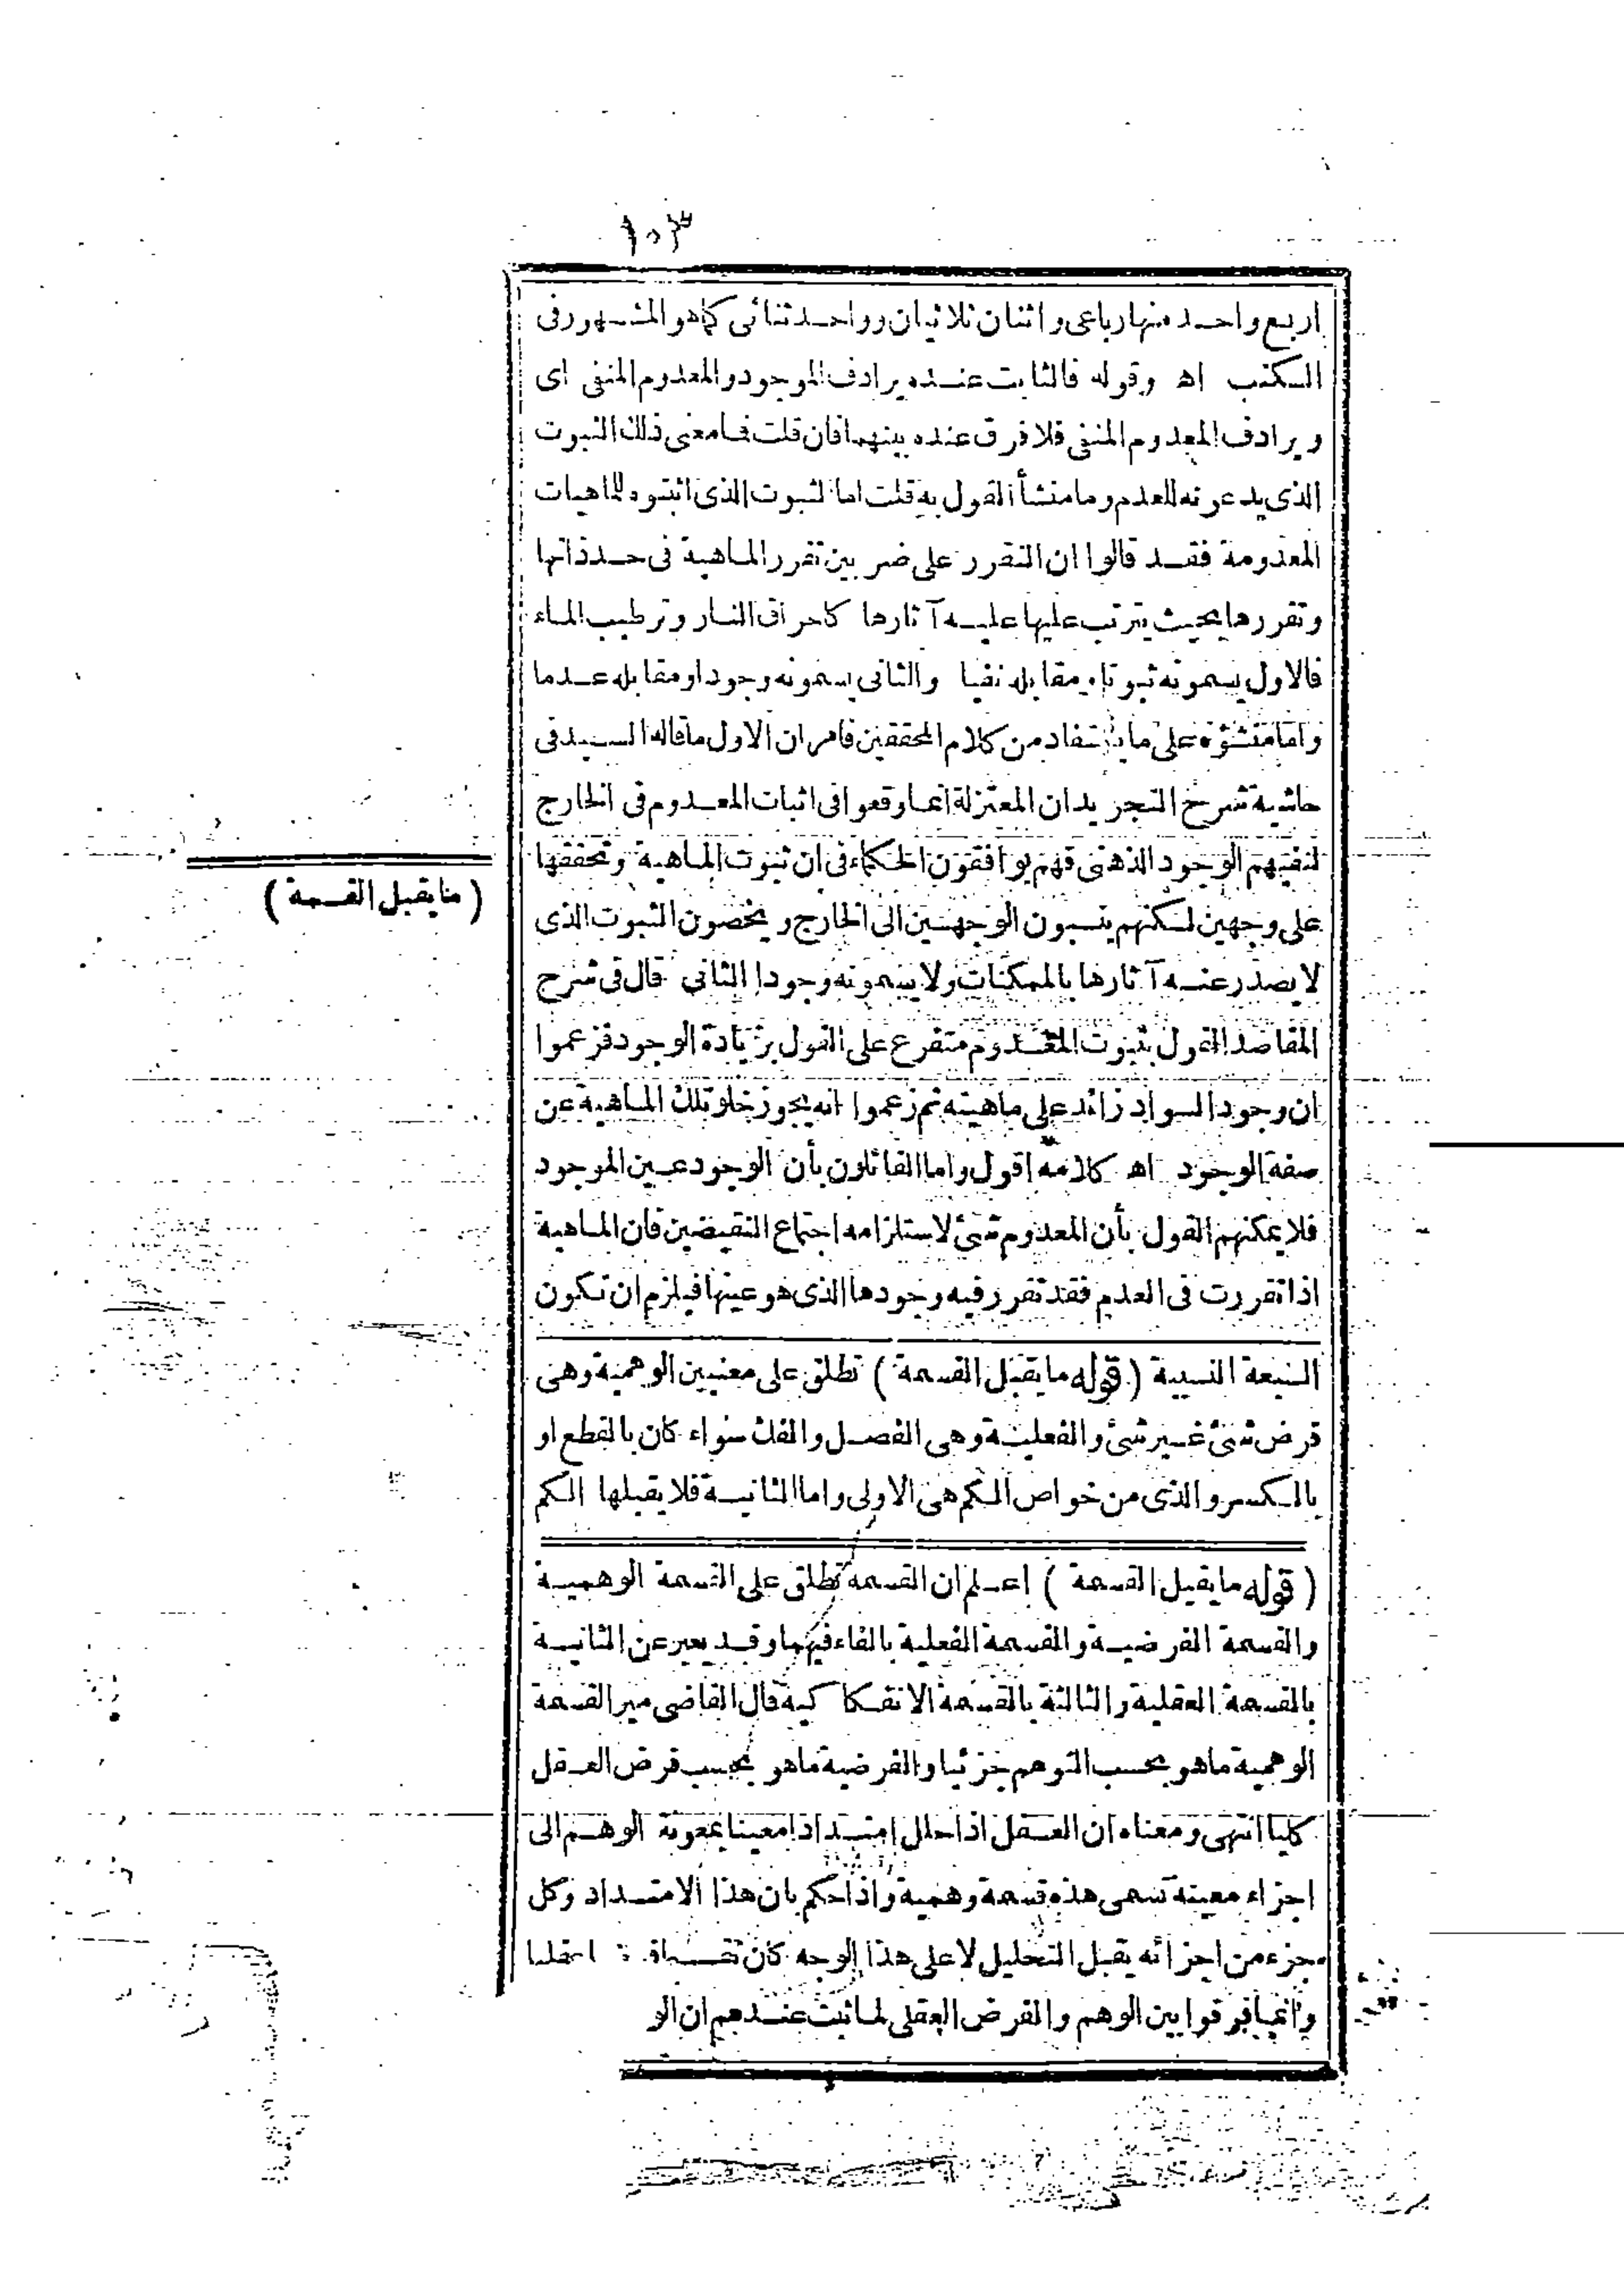 ١٠٣
اربع واحد منها رباعى واثنان ثلاثيان وواحد ثنائى كما هو المشهور فى
الكتب اه وقوله فالثابت عنده يرادف الموجود والمعدوم المنفى اى
ويرادف المعدوم المنفى فلا فرق عنده بينهما فان قلت فما معنى ذلك الثبوت
الذى يدعونه للعدم وما منشأ القول به قلت اما الثبوت الذى اثبتوه للماهيات
المعدومة فقد قالوا ان التقرر على ضربين تقرر الماهية فى حد ذاتها
وتقررها بحيث يترتب عليها عليه آثارها كاحراق النار وترطيب الماء
فالاول يسمونه ثبوتا ومقابله نفيا والثانى يسمونه وجودا ومقابله عدما
واما منشؤه على ما يستفاد من كلام المحققين فامران الاول ما قاله السيد فى
حاشية شرح التجريد ان المعتزلة انما وقعوا فى اثبات المعدوم فى الخارج
لنفيهم الوجود الذهنى فهم يوافقون الحكماء فى ان ثبوت الماهية وتحققها
على وجهين لكنهم ينسبون الوجهين الى الخارج ويخصون الثبوت الذى
لا يصدر عنه آثارها بالممكنات ولا يسمونه وجودا الثانى قال فى شرح
المقاصد القول بثبوت المعدوم متفرع على القول بزيادة الوجود فزعموا
ان وجود السواد زائد على ماهيته ثم زعموا انه يجوز خلو تلك الماهية عن
صفة الوجود اه كلامه اقول واما القائلون بأن الوجود عين الموجود
فلا يمكنهم القول بأن المعدوم شئ لاستلزامه اجتماع النقيضين فان الماهية
اذا تقررت فى العدم فقد تقرر فيه وجودها الذى هو عينها فيلزم ان تكون
السبعة النسبية (قوله ما يقبل القسمة) تطلق على معنيين الوهمية وهى
فرض شئ غير شئ والفعلية وهى الفصل والفك سواء كان بالقطع او
بالكسر والذى من خواص الكم هى الاولى واما الثانية فلا يقبلها الكم
(قوله ما يقبل القسمة) اعلم ان القسمة تطلق على القسمة الوهمية
والقسمة الفرضية والقسمة الفعلية بالفاء فيهما وقد يعبر عن الثانية
بالقسمة العقلية والثالثة بالقسمة الانفكاكية قال القاضى مير القسمة
الوهمية ما هو بحسب التوهم جزئيا والفرضية ما هو بحسب فرض العقل
كليا انتهى ومعناه ان العقل اذا حلل امتدادا معينا بمعونة الوهم الى
اجزاء معينة تسمى هذه قسمة وهمية واذا حكم بان هذا الامتداد وكل
جزء من اجزائه يقبل التحليل لا على هذا الوجه كان
وانما فرقوا بين الوهم والفرض العقلى لما ثبت عندهم ان الو
(ما يقبل القسمة)